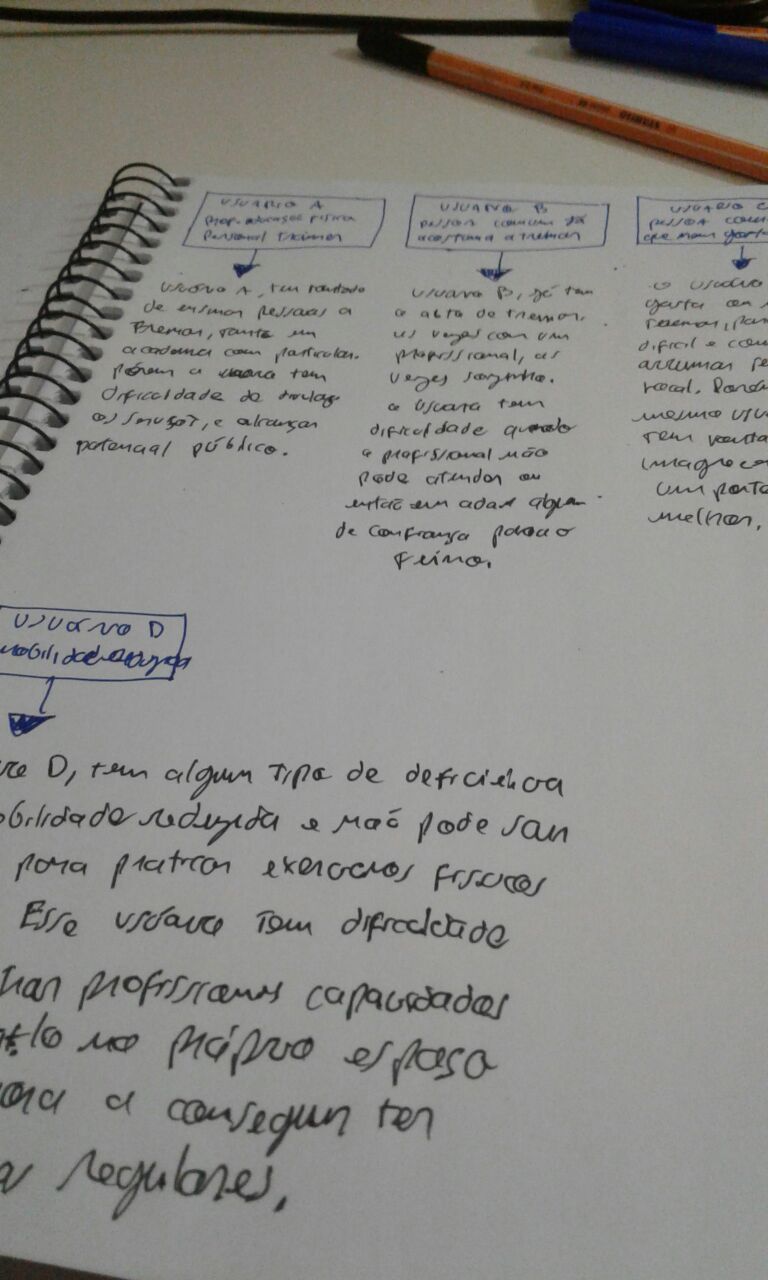 STABILO
USUÁRIO A
prof. educação física
Personal Trainer
USUÁRIO A, tem vontade
de ensinar pessoas a
Treinar, tanto em
academia com particular.
porém a tem
dificuldade de
e alcançar
potencial público.
USUARIO B
pessoa comum já
acostuma a treinar
USUARIO B, já tem
o de treinar,
as vezes com um
profissional, as
vezes sozinho.
o usuario tem
dificuldade quando
a profissional não
pode atender ou
então em alguem
de confiança para o
Treino.
USUARIO C
pessoa com
que mem gosta
O Usuário
gosta
treinar,
dificil e com
arrumar
local.
mesmo usu
tem vonta
um
melhor.
USUARIO D
mobilidade reduzida
D, tem algum Tipo de deficiência
obilidade reduzida e não pode sair
para praticar exercicios fisicos
Esse usuario tem dificuldade
profissionais capacitados
no próprio espaço
a conseguir ter
regulares.